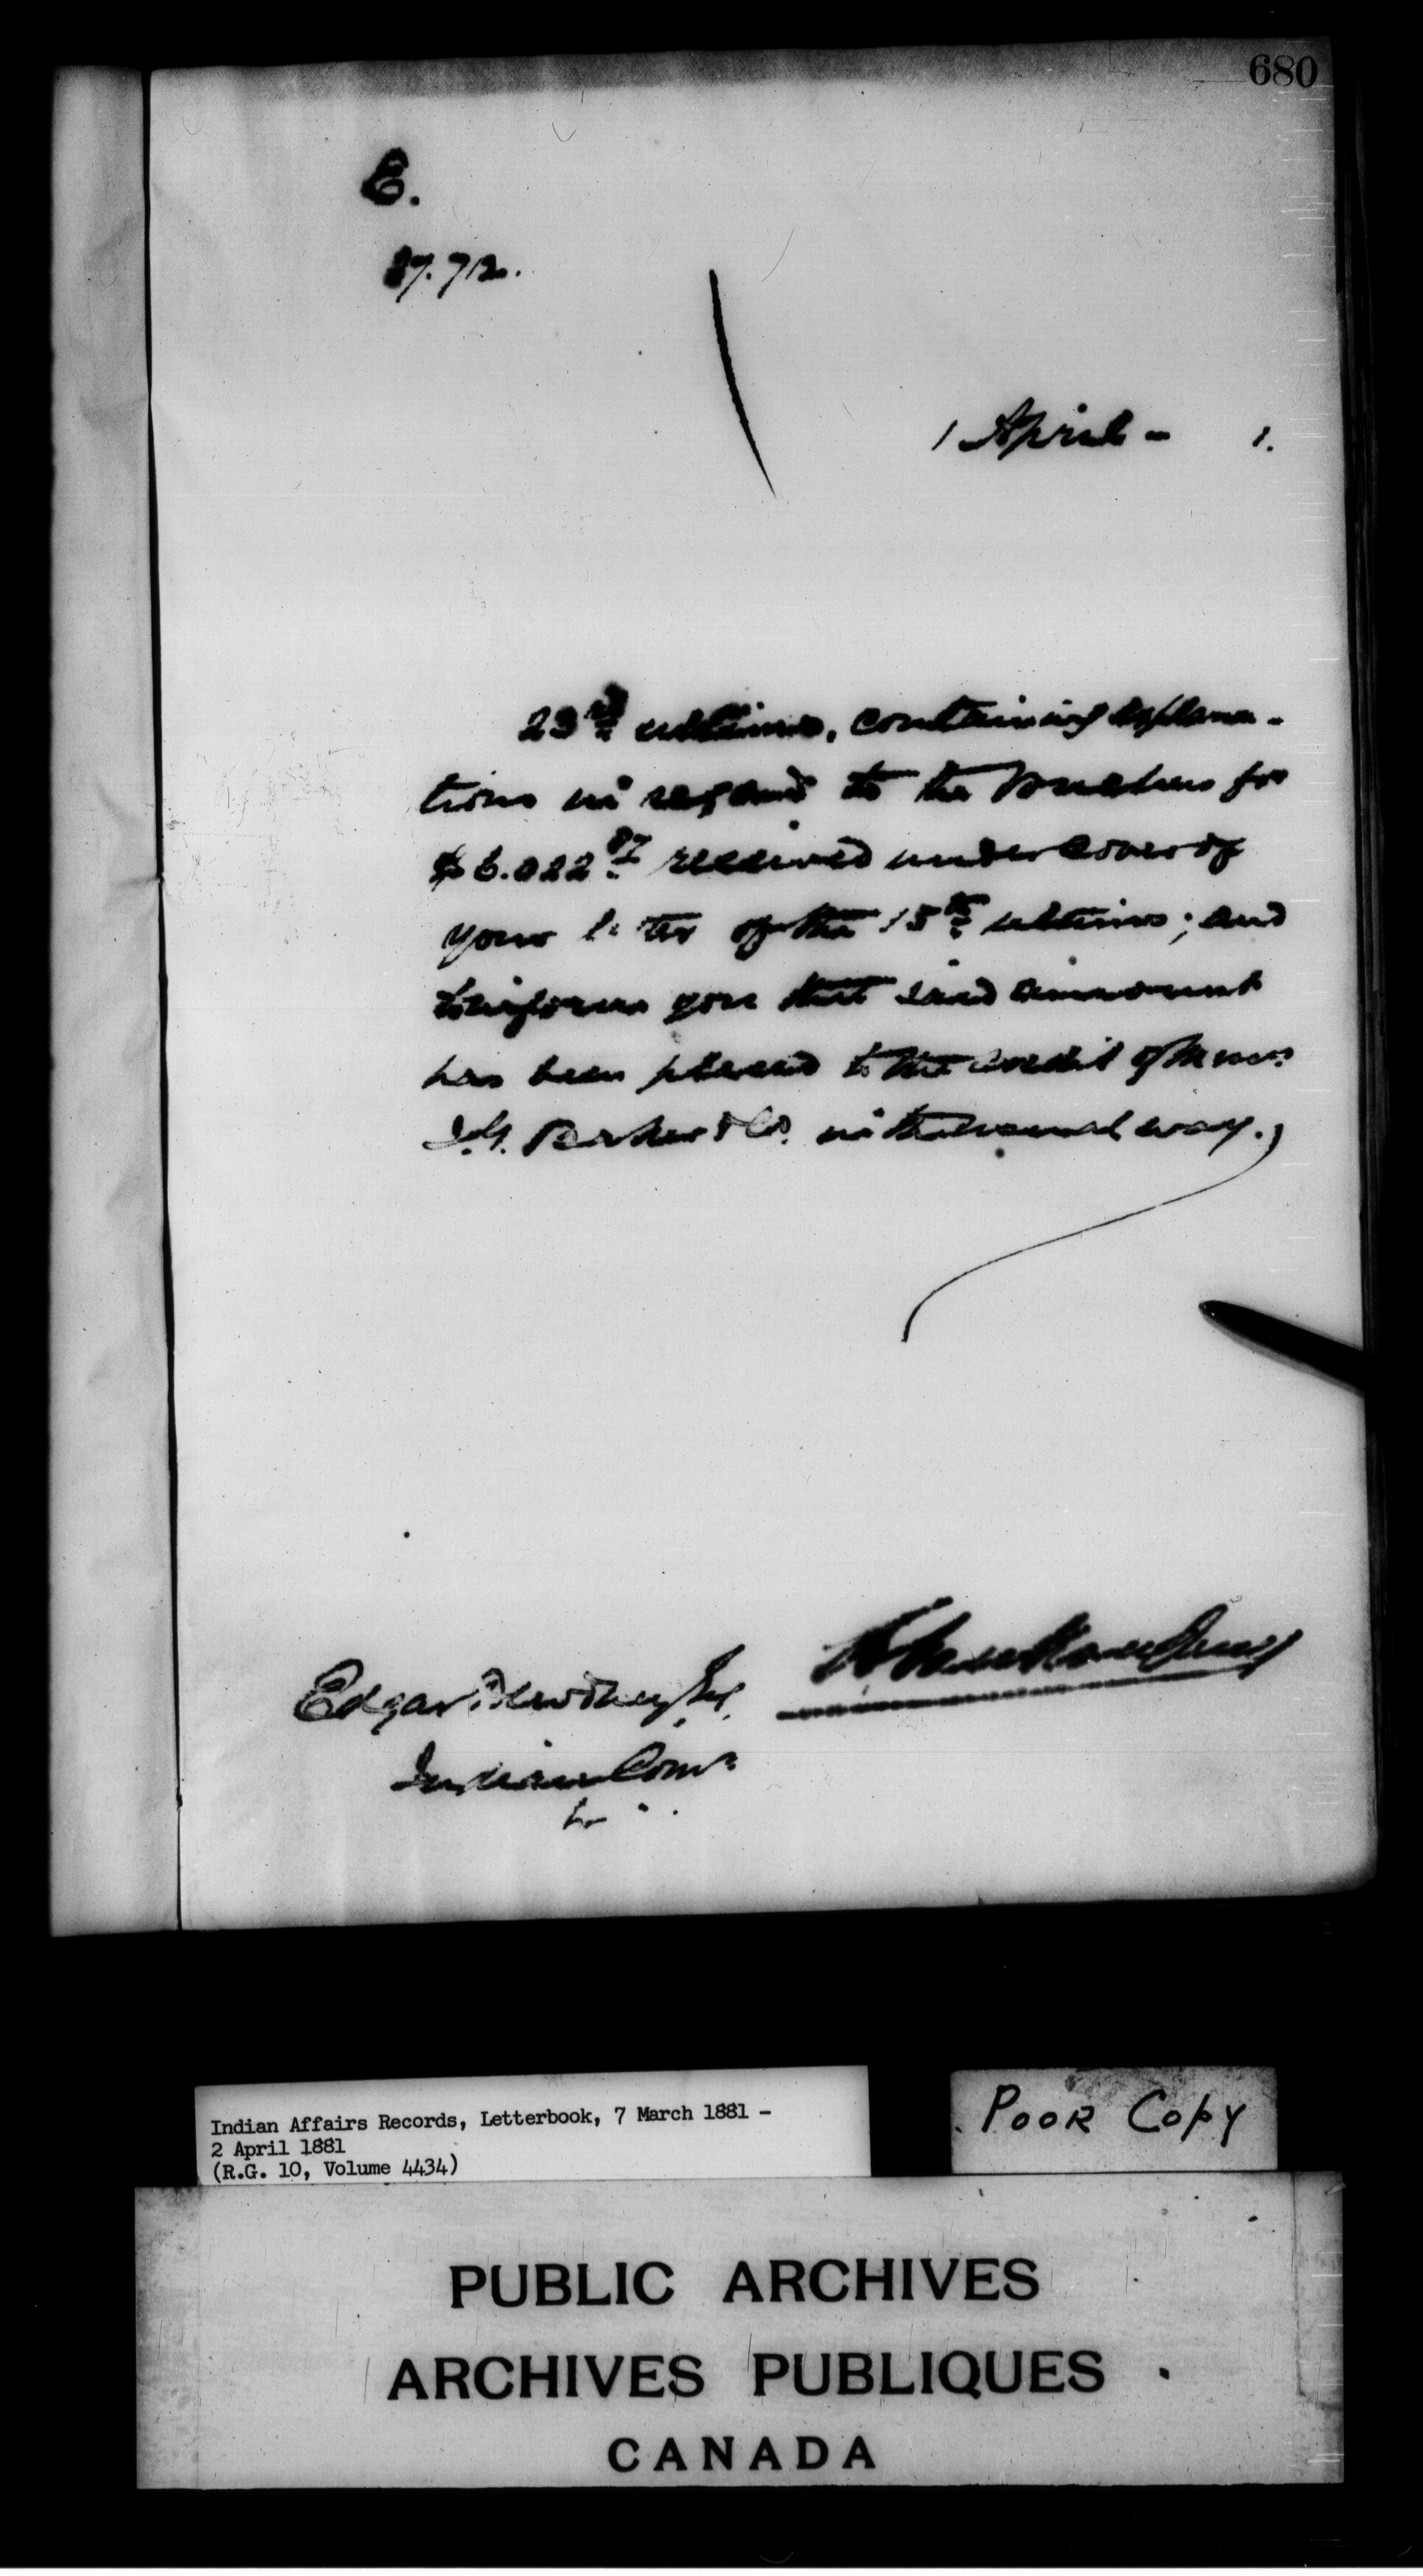 680
E.
27.712.
1 April - 1.
23rd ultimo, containing explana-
tions in regard to the vouchers for
$6.022.87 received under cover of
your letter of the 15th ultimo; and
to inform you that said ammount
has been placed to the credit of Messrs
I.G. Baker & Co. in the usual way.
Edgar Dewdney Esq.
Indian Comr
Indian Affairs Records, Letterbook, 7 March 1881 -
2 April 1881
(R.G. 10, Volume 4434)
POOR COPY
PUBLIC ARCHIVES
ARCHIVES PUBLIQUES
CANADA